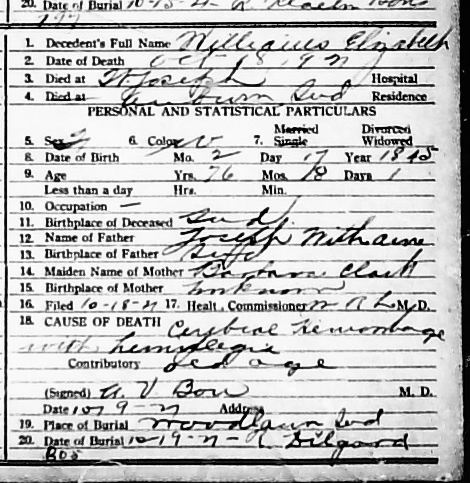 20. Date of Burial 10-15-21
1. Decedent's Full Name Williams Elizabeth
2. Date of Death Oct 18 1921
3. Died at St Joseph Hospital
4. Died at Auburn Ind Residence
PERSONAL AND STATISTICAL PARTICULARS
5. Sex F 6. Color W 7. Married Single Divorced Widowed
8. Date of Birth Mo. 2 Day 17 Year 1845
9. Age Yrs. 76 Mos. 18 Days 1
Less than a day Hrs. Min.
10. Occupation —
11. Birthplace of Deceased Ind
12. Name of Father Joseph
13. Birthplace of Father
14. Maiden Name of Mother Barbara Clark
15. Birthplace of Mother Unknown
16. Filed 10-18-21 17. Healt. Commissioner M. D.
18. CAUSE OF DEATH Cerebral Hemorrhage
with hemiplegia
Contributory old age
(Signed) M. D.
Date 10 19-21 Address
19. Place of Burial Woodlawn Ind
20. Date of Burial 10-19-21